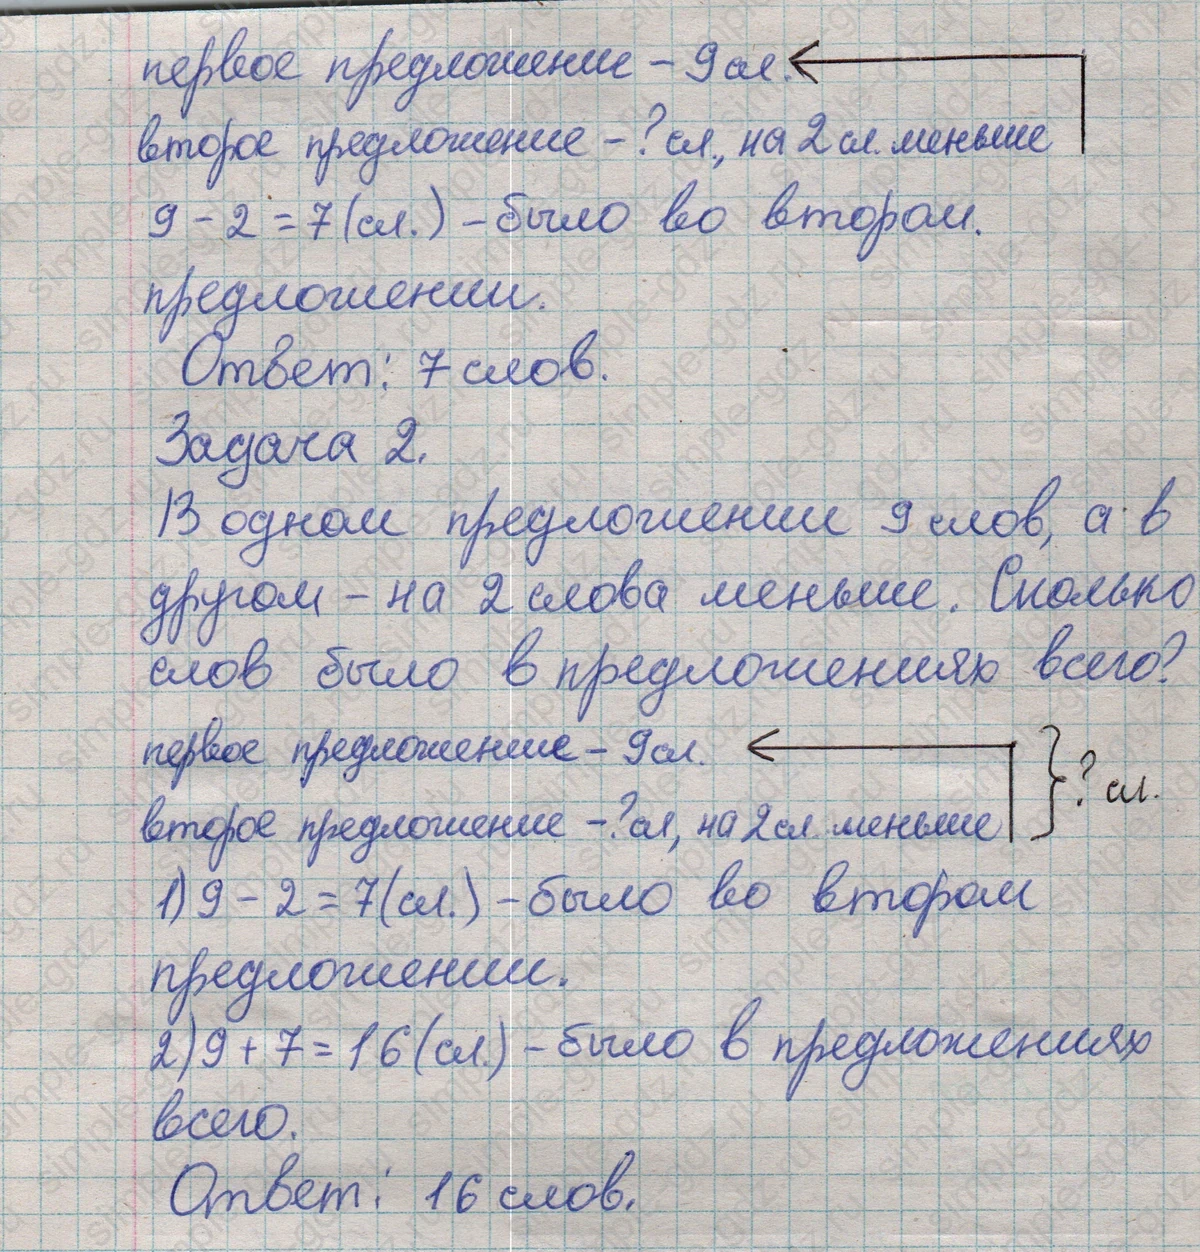 первое предложение – 9 сл.
второе предложение – ? сл., на 2 сл. меньше
9 – 2 = 7 (сл.) – было во втором.
предложении.
Ответ: 7 слов.
Задача 2.
В одном предложении 9 слов, а в
другом – на 2 слова меньше. Сколько
слов было в предложениях всего?
первое предложение – 9 сл.
второе предложение – ? сл, на 2 сл. меньше } ? сл.
1) 9 – 2 = 7 (сл.) – было во втором
предложении.
2) 9 + 7 = 16 (сл.) – было в предложениях
всего.
Ответ: 16 слов.